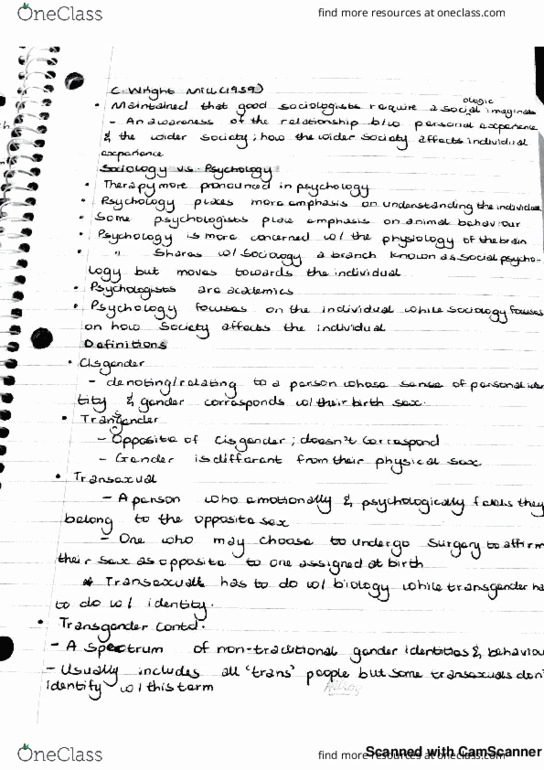 OneClass find more resources at oneclass.com
C. Wright Mill (1959)
• Maintained that good sociologists require a social ologic imaginat
- An awareness of the relationship b/w personal experience
& the wider society; how the wider society affects individual
experience
Sociology vs. Psychology
• Therapy more pronounced in psychology
• Psychology places more emphasis on understanding the individual
• Some psychologists place emphasis on animal behaviour
• Psychology is more concerned w/ the physiology of the brain
• " shares w/ sociology a branch known as social psycho-
logy but moves towards the individual
• Psychologists are academics
• Psychology focuses on the individual while sociology focuses
on how society affects the individual
Definitions
• Cisgender
- denoting/relating to a person whose sense of personal iden
tity & gender corresponds w/ their birth sex.
• Transgender
- Opposite of cisgender; doesn't correspond
- Gender is different from their physical sex
• Transexual
- A person who emotionally & psychologically feels they
belong to the opposite sex
- One who may choose to undergo surgery to affirm
their sex as opposite to one assigned at birth
* Transexual has to do w/ biology while transgender ha
to do w/ identity.
• Transgender Contd.
- A spectrum of non-traditional gender identities & behaviou
- Usually includes all 'trans' people but some transexuals don'
identify w/ this term
OneClass find more resources at oneclass.com
Scanned with CamScanner